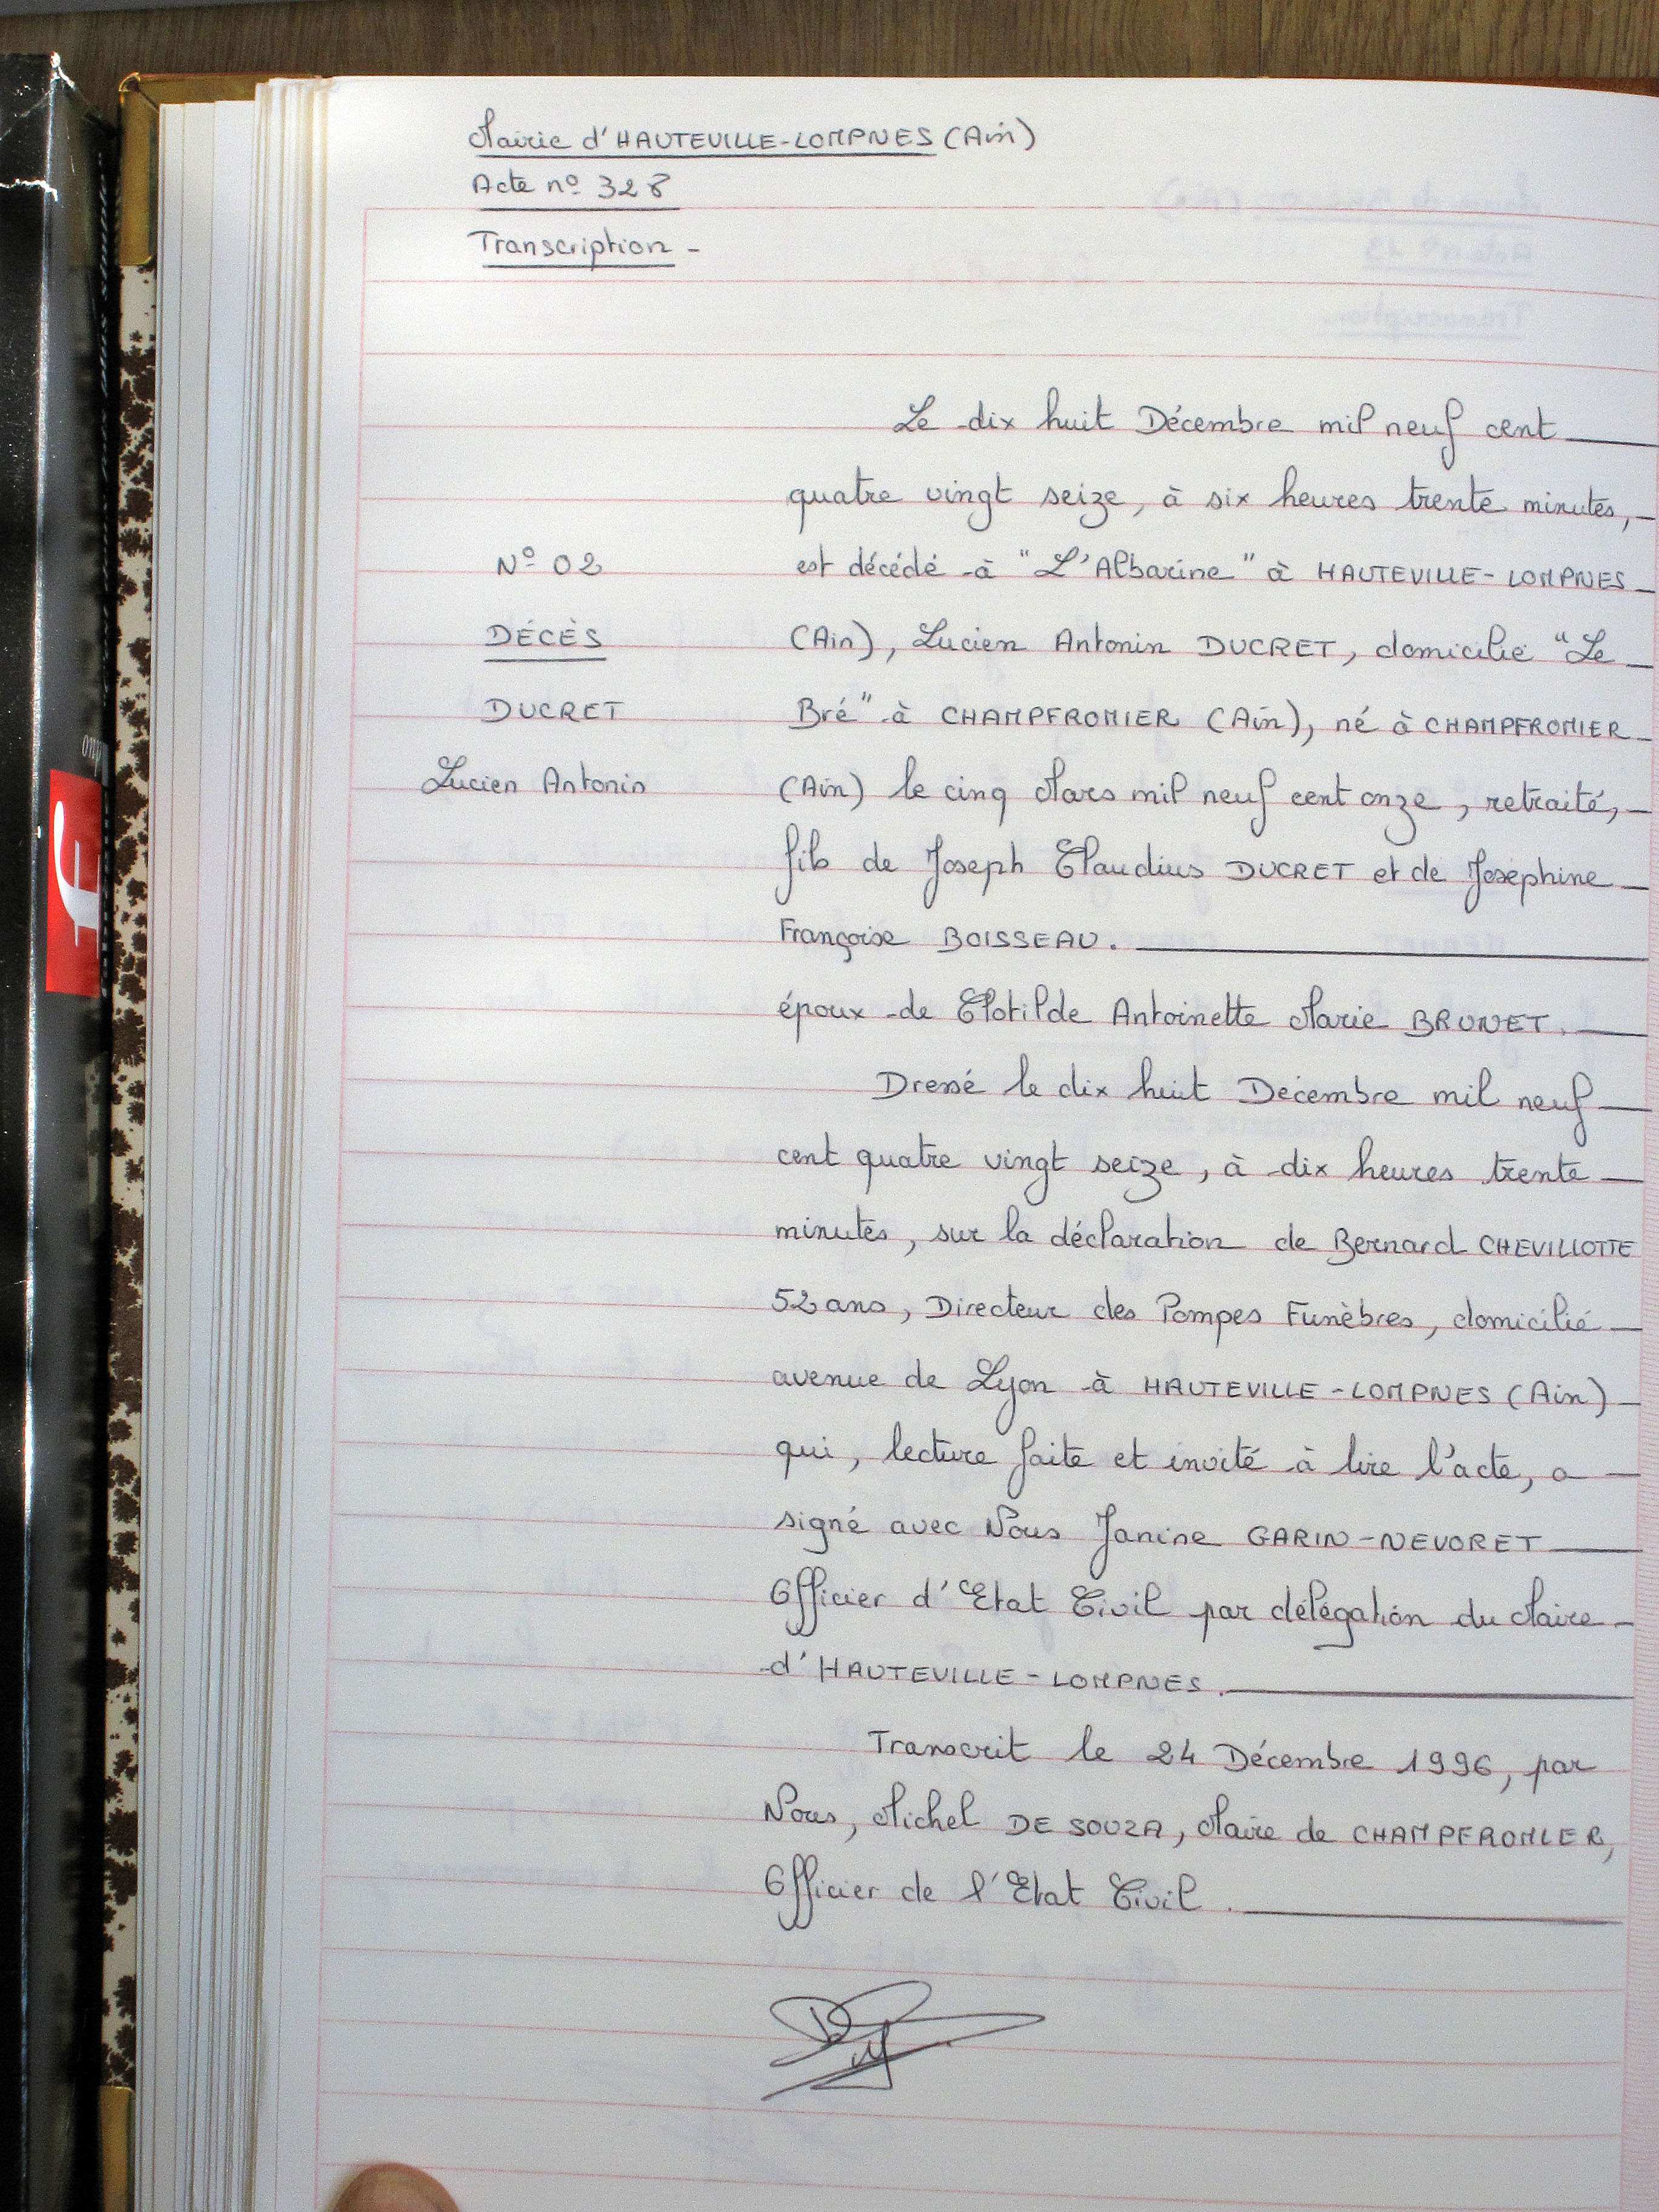 Mairie d'HAUTEVILLE-LOMPNES (Ain)
Acte nº 328
Transcription -
Le dix huit Décembre mil neuf cent
quatre vingt seize, à six heures trente minutes,
Nº 02
est décédé à "L'Albarine" à HAUTEVILLE-LOMPNES
DÉCÈS
(Ain), Lucien Antonin DUCRET, domicilié "Le
DUCRET
Bré" à CHAMPFROMIER (Ain), né à CHAMPFROMIER
Lucien Antonin
(Ain) le cinq Mars mil neuf cent onze, retraité,
fils de Joseph Claudius DUCRET et de Josephine
Françoise BOISSEAU.
époux de Clotilde Antoinette Marie BRUNET.
Dressé le dix huit Décembre mil neuf
cent quatre vingt seize, à dix heures trente
minutes, sur la déclaration de Bernard CHEVILLOTTE
52 ans, Directeur des Pompes Funèbres, domicilié
avenue de Lyon à HAUTEVILLE-LOMPNES (Ain)
qui, lecture faite et invité à lire l'acte, a
signé avec Nous Janine GARIN-NEVORET
Officier d'Etat Civil par délégation du Maire
d'HAUTEVILLE-LOMPNES.
Transcrit le 24 Décembre 1996, par
Nous, Michel DE SOUZA, Maire de CHAMPFROMIER,
Officier de l'Etat Civil.